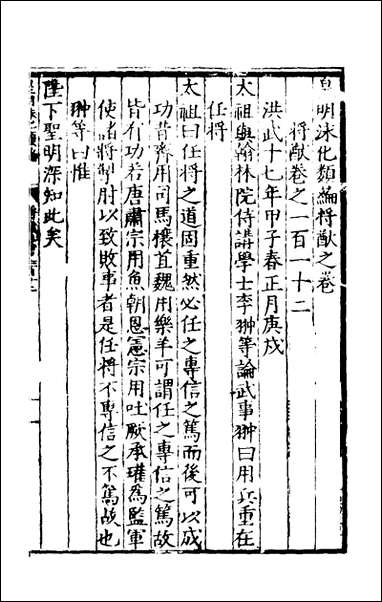 皇明泳化類編將猷之卷
將猷卷之一百一十二
洪武十七年甲子春正月庚戌
太祖與翰林院侍講學士李翀等論武事翀曰用兵重在
任將
太祖曰任將之道固重然必任之專信之篤而後可以成
功昔齊用司馬穰苴魏用樂羊可謂任之專信之篤故
皆有功若唐肅宗用魚朝恩憲宗用吐厥承璀為監軍
使諸將掣肘以致敗事者是任將不專信之不篤故也
翀等曰惟
陛下聖明深知此矣